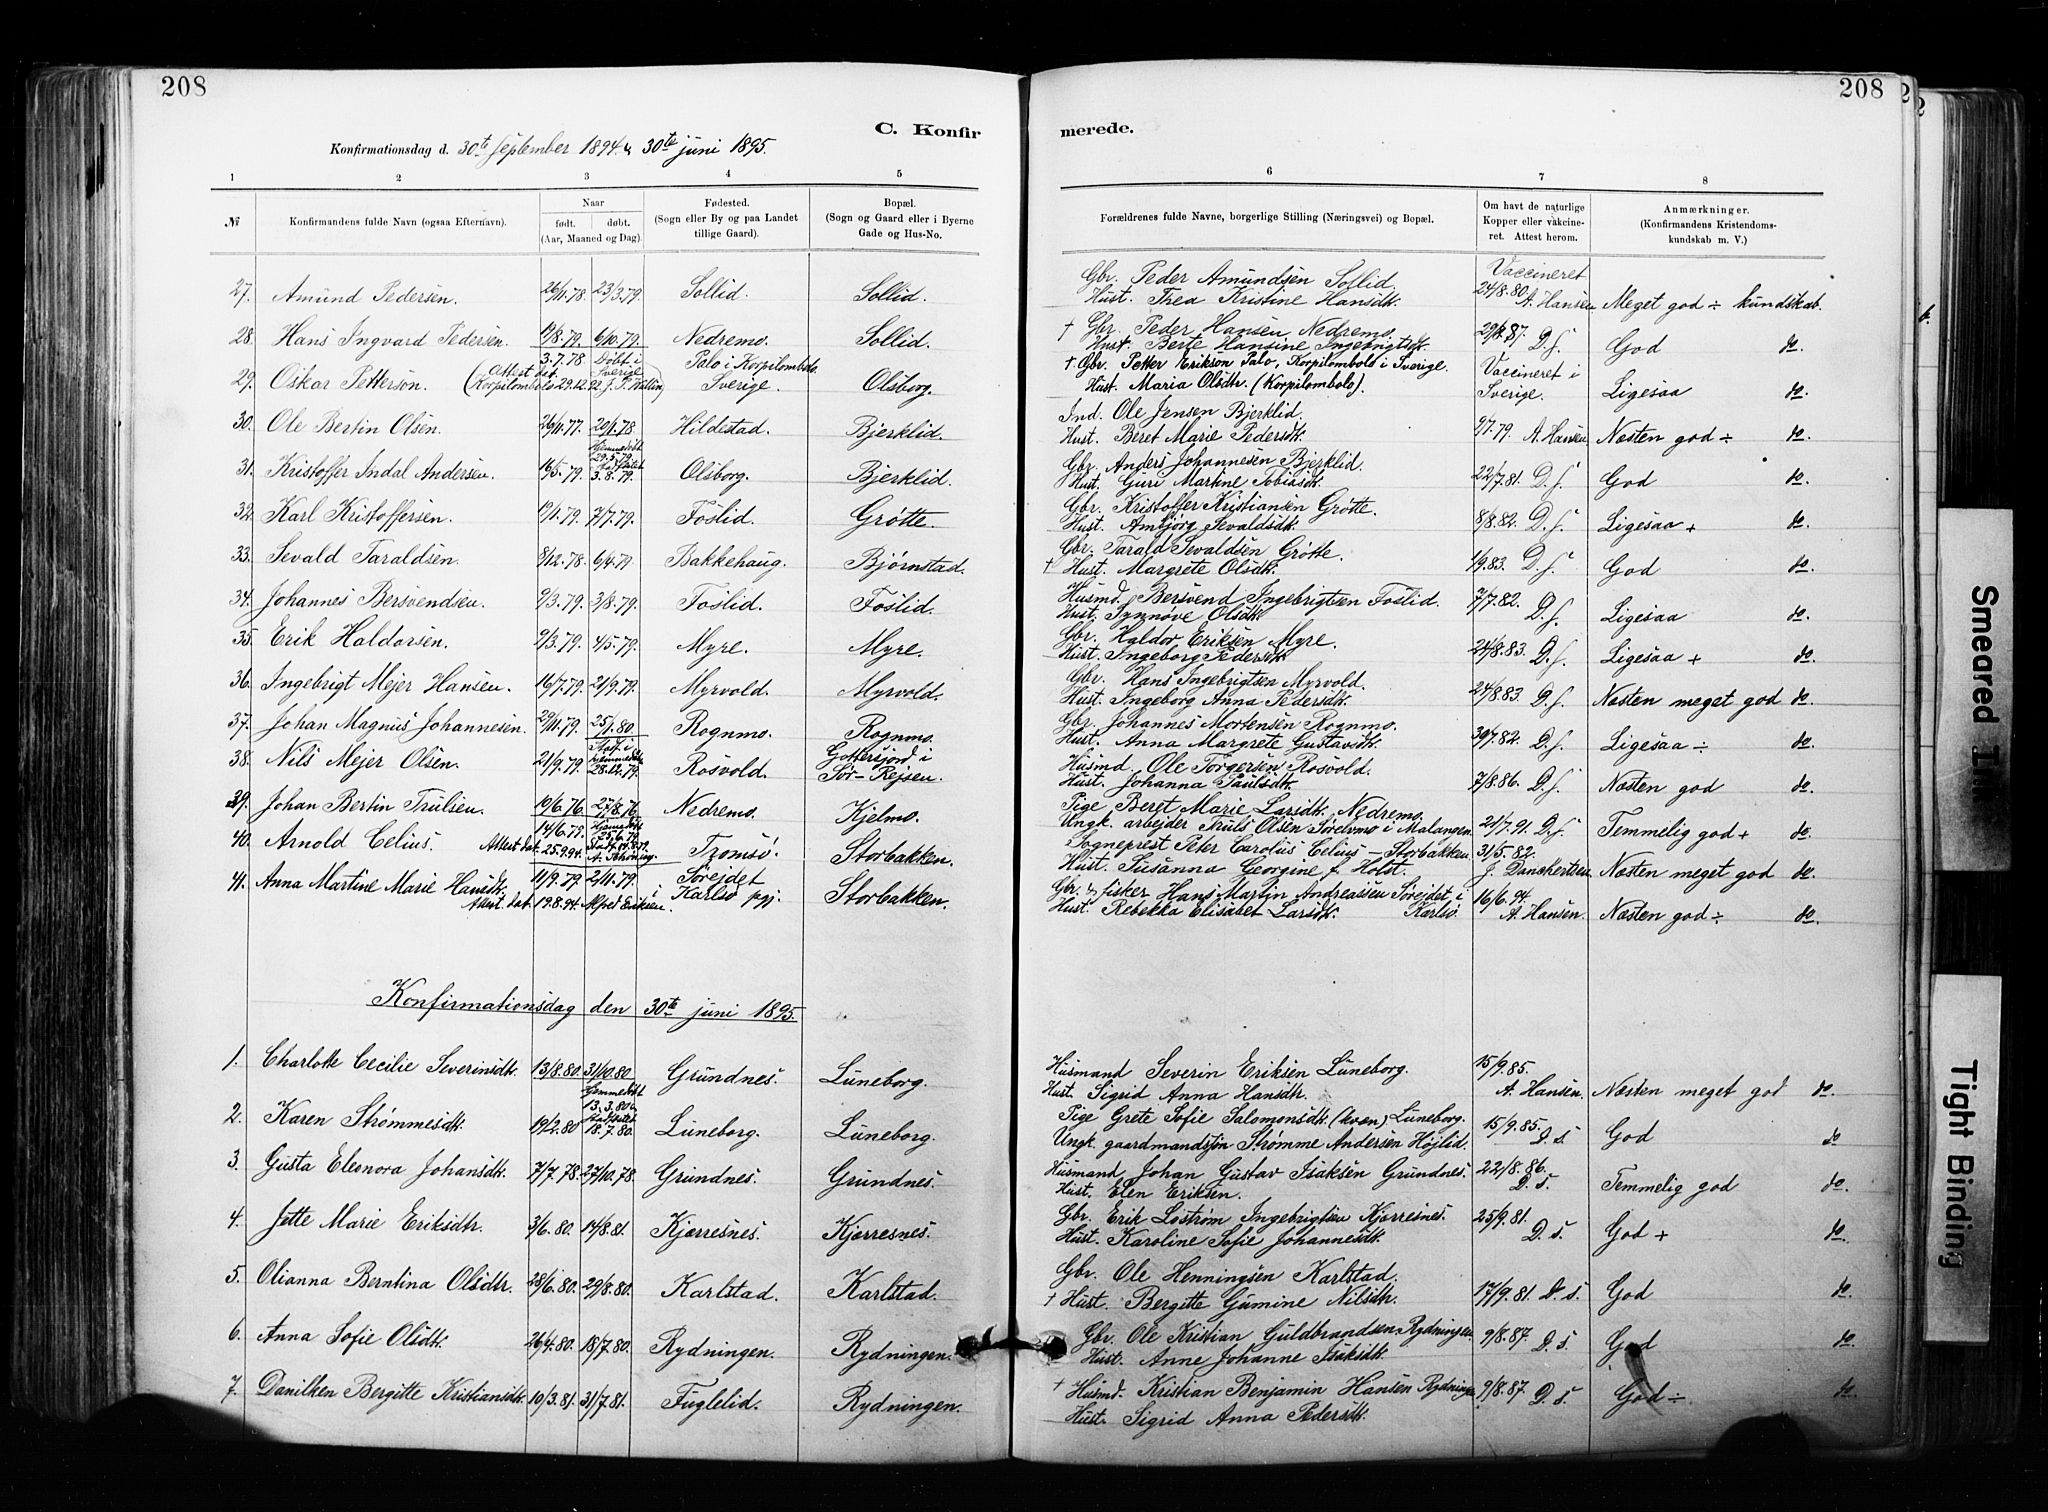 208
208
C. Konfir
merede.
Konfirmationsdag d. 30te September 1894 & 30te juni 1895.
1 2 3 4 5 6 7 8
№ Konfirmandens fulde Navn (ogsaa Efternavn). Naar født. døbt. (Aar, Maaned og Dag). Fødested. (Sogn eller By og paa Landet tillige Gaard). Bopæl. (Sogn og Gaard eller i Byerne Gade og Hus-No. Forældrenes fulde Navne, borgerlige Stilling (Næringsvei) og Bopæl. Om havt de naturlige Kopper eller vakcineret. Attest herom. Anmærkninger. (Konfirmandens Kristendomskundskab m. V.)
27. Amund Pedersen. 26/11.78 23/3.79. Sollid. Sollid. Gbr. Peder Amundsen Sollid. Vaccineret
Hust. Thea Kristine Hansdtr. 24/8.80. A. Hansen Meget god ÷ kundskab.
28. Hans Ingvard Pedersen. 19/8.79. 6/10.79. Nedremo. Sollid. † Gbr. Peder Hansen Nedremo.
Hust. Berte Hansine Ingebrigtsdtr. D. s. God do.
29. Oskar Petterson. 3.7.78 Døbt i Sverige Palo i Korpilombolo Sverige. Olsborg. † Gbr. Petter Erikson Palo, Korpilombolo i Sverige. Vaccineret i
(Attest dat. Korpilombolo 29.12.92 Hust. Maria Olsdtr. (Korpilombolo). Sverige. Ligesaa do.
30. Ole Bertin Olsen. 26/11.77. 20/1.78 Hildestad. Bjerklid. Ind. Ole Jensen Bjerklid.
Hust. Beret Marie Pedersdtr. 9/7.79. A. Hansen Næsten god ÷ do.
31. Kristoffer Indal Andersen. 16/5.79. Hjemmedøbt 29.5.79. 3.8.79. Olsborg. Bjerklid. Gbr. Anders Johannesen Bjerklid.
Hust. Guri Martine Tobiasdtr. 22/7.81. D. s. God do.
32. Karl Kristoffersen. 19/1.79. 7/7.79. Foslid. Grøtte. Gbr. Kristoffer Kristiansen Grøtte.
Hust. Ambjørg Sevaldsdtr. 8/8.82. D. s. Ligesaa + do.
33. Sevald Taraldsen. 8/12.78. 6/4.79. Bakkehaug. Bjørnstad. Gbr. Tarald Sevaldsen Grøtte.
† Hust. Margrete Olsdtr. 1/9.83. D. s. God do.
34. Johannes Bersvendsen. 9/3.79. 3/8.79. Foslid. Foslid. Husmd. Bersvend Ingebrigtsen Foslid. 7/7.82.
Hust. Synnøve Olsdtr. D. s. Ligesaa do.
35. Erik Haldorsen. 9/3.79. 4/5.79. Myre. Myre. Gbr. Haldor Eriksen Myre.
Hust. Ingeborg Pedersdtr. 24/8.83. D. s. Ligesaa + do.
36. Ingebrigt Mejer Hansen. 16/7.79. 21/9.79. Myrvold. Myrvold. Gbr. Hans Ingebrigtsen Myrvold.
Hust. Ingeborg Anna Pedersdtr. 24/8.83. D. s. Næsten meget god do.
37. Johan Magnus Johannesen. 29/11.79. 25/1.80. Rognmo. Rognmo. Gbr. Johannes Mortensen Rognmo.
Hust. Anna Margrete Gustavsdtr. 30/7.82. D. s. Ligesaa ÷ do.
38. Nils Mejer Olsen. 21/9.79. Stadf. i 28.12.79. Rosvold. Gottersjord i Sør-Rejsen. Husmd. Ole Torgersen Rosvold.
Hust. Johanna Paulsdtr. 7/8.86. D. s. Næsten god do.
39. Johan Bertin Trulsen. 10/6.76. 27/8.76. Nedremo. Kjelmo. Pige Beret Marie Larsdtr. Nedremo.
Ungk. arbejder Truls Olsen Sørelvmo i Malangen. 21/7.91. D. s. Temmelig god + do.
40. Arnold Celius. Attest dat. 25.9.94. 14/6.79. Hjemmedøbt 25.6.79. Tromsø. Storbakken. Sogneprest Peter Carolus Celius – Storbakken. 31/5.82.
Hust. Susanna Georgine f. Holst. J. Danckertsen. Næsten meget god do.
41. Anna Martine Marie Hansdtr. 11/9.79. 2/11.79. Sørejdet i Karlsø pgj. Storbakken. Gbr. & fisker Hans Martin Andreassen Sørejdet i 16/6.94.
Attest dat. 19.8.94. Alfred Eriksen. Hust. Rebekka Elisabet Larsdtr. Karlsø. A. Hansen. Næsten god ÷ do.
Konfirmationsdag den 30te juni 1895.
1. Charlotte Cecilie Severinsdtr. 13/8.80. 31/10.80. Grundnes. Luneborg. Husmand Severin Eriksen Luneborg. 15/9.85.
Hust. Sigrid Anna Hansdtr. A. Hansen. Næsten meget god do.
2. Karen Strømmesdtr. 19/2.80 Hjemmedøbt 13.3.80. 18.7.80. Luneborg. Luneborg. Pige Grete Sofie Salomonsdtr. (kven) Luneborg. 15/9.85.
Ungk. gaardmandssøn Strømme Andersen Højlid. D. s. God do
3. Gusta Eleonora Johansdtr. 7/7.78. 27/10.78. Grundnes. Grundnes. Husmand Johan Gustav Isaksen Grundnes. 22/8.86.
Hust. Elen Eriksen. D. s. Temmelig god do.
4. Jette Marie Eriksdtr. 3/6.80. 14/8.81. Kjærresnes. Kjærresnes. Gbr. Erik Løstrøm Ingebrigtsen Kjærresnes. 25/9.81.
Hust. Karoline Sofie Johannesdtr. D. s. God + do.
5. Olianna Berntina Olsdtr. 28/6.80. 29/8.80. Karlstad. Karlstad. Gbr. Ole Henningsen Karlstad.
† Hust. Bergitte Gumine Nilsdtr. 17/9.81. D. s. God do.
6. Anna Sofie Olsdtr. 26/4.80. 18/7.80. Rydningen. Rydningen. Gbr. Ole Kristian Guldbrandsen Rydningen. 9/8.87. D. s. God do.
Hust. Anne Johanne Isaksdtr.
7. Danilken Bergitte Kristiansdtr. 10/3.81. 31/7.81. Fuglelid. Rydningen. † Husmd. Kristian Benjamin Hansen Rydningen 9/8.87. D. s. God ÷ do.
Hust. Sigrid Anna Pedersdtr.
Tight Binding